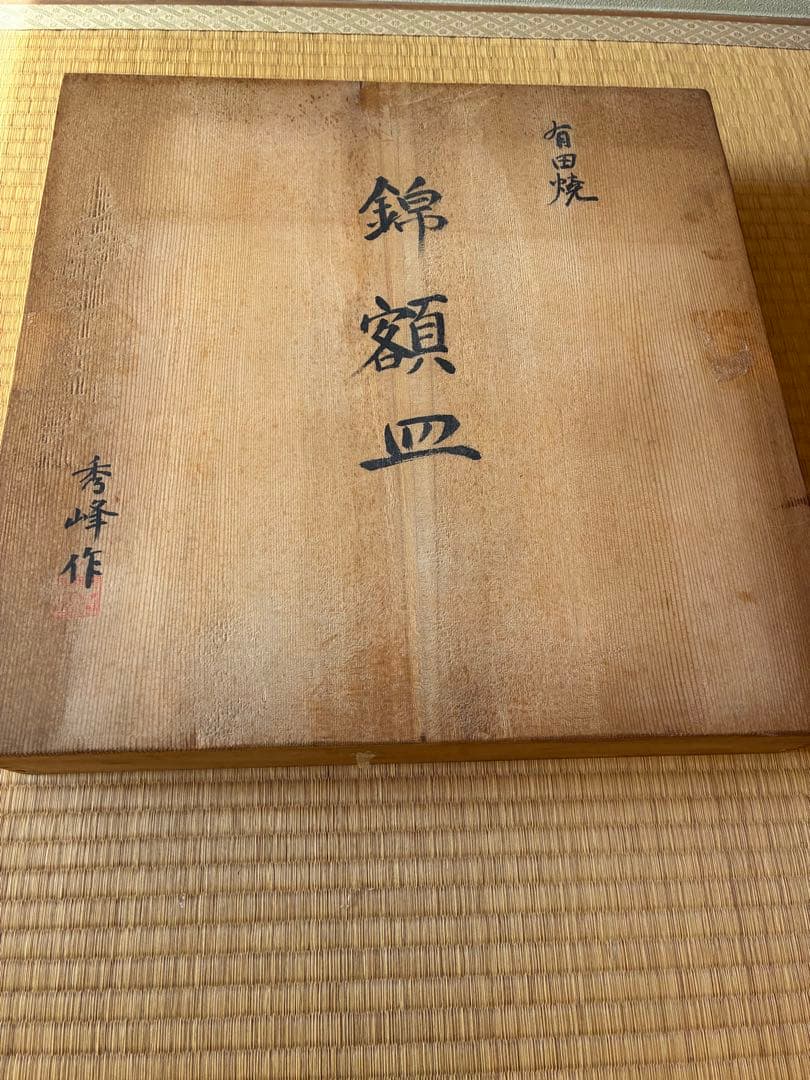 有田焼
錦額皿
秀峰作